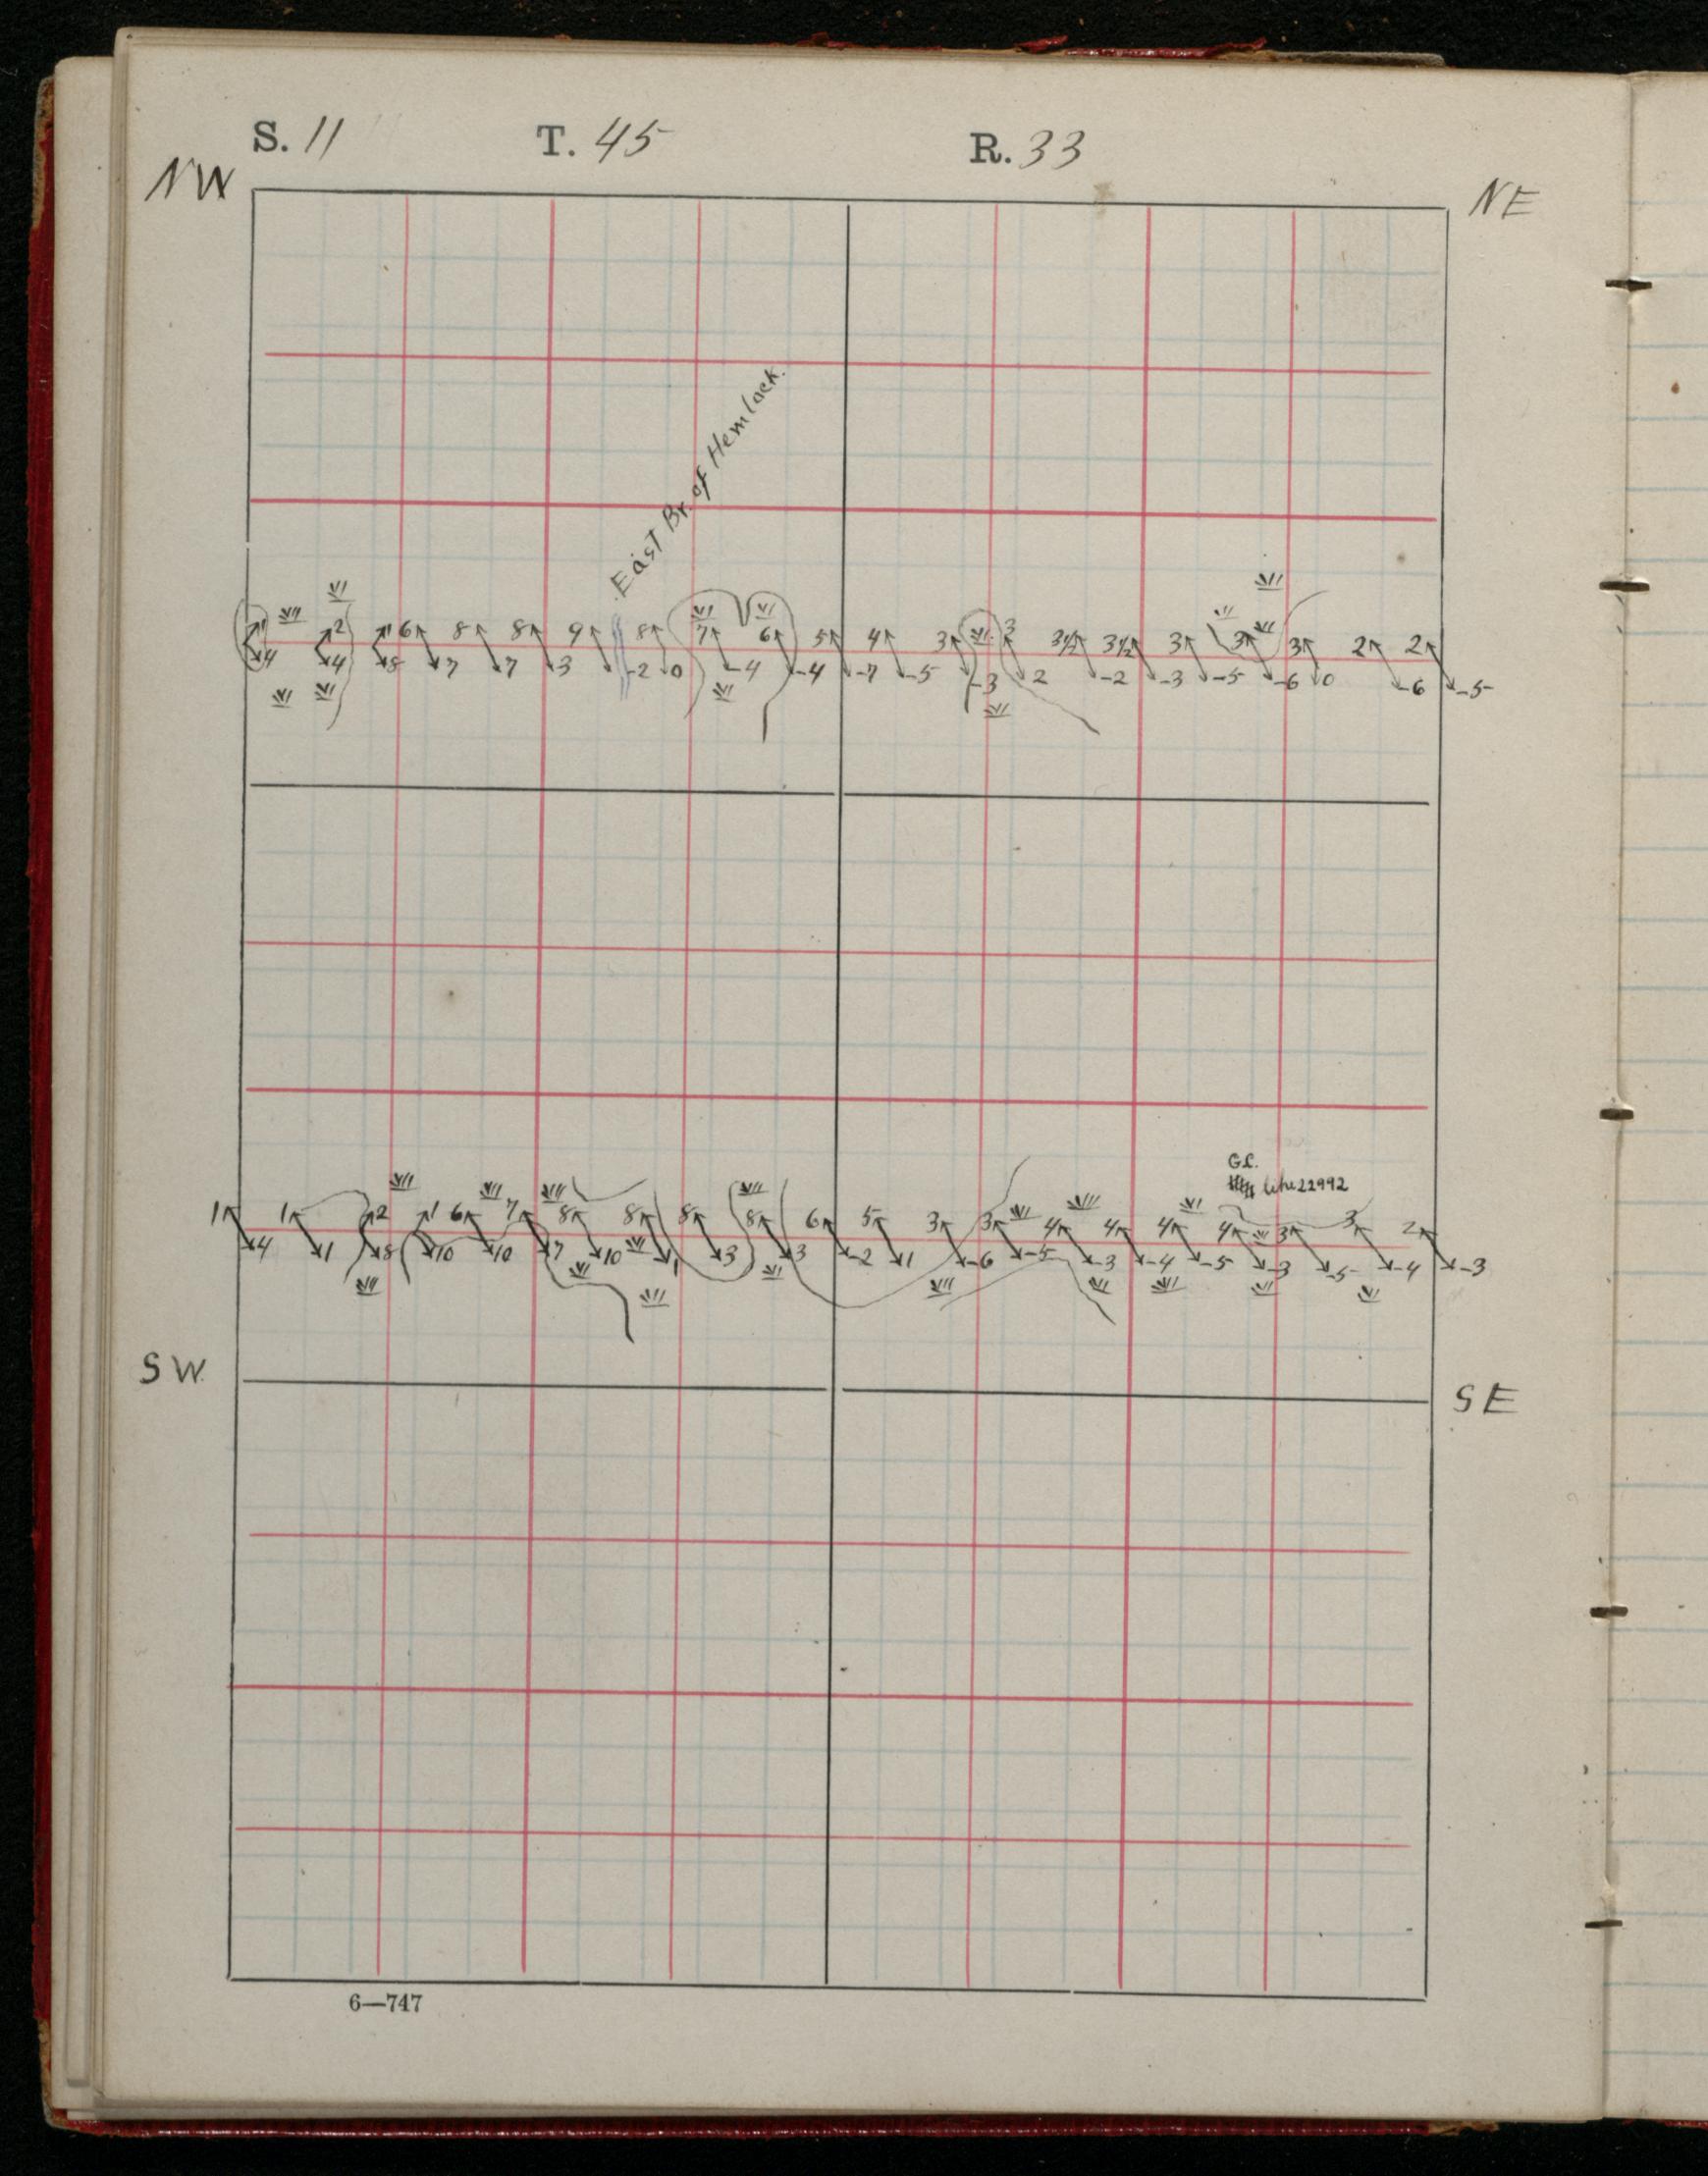 S. 11 T. 45 R. 33
NW NE
East Br. of Hemlock.
1 2 1 6 8 8 9 8 7 6 5 4 3 3 3½ 3½ 3 3 3 2 2
4 4 8 7 7 3 -2 0 -4 -4 -7 -5 -3 2 -2 -3 -5 -6 0 -6 -5
G.L.
22992
1 1 2 1 6 7 8 8 8 8 6 5 3 3 4 4 4 4 3 3 2
4 1 8 10 10 7 10 1 3 3 -2 1 -6 -5 -3 -4 -5 -3 -5 -4 -3
SW SE
6—747